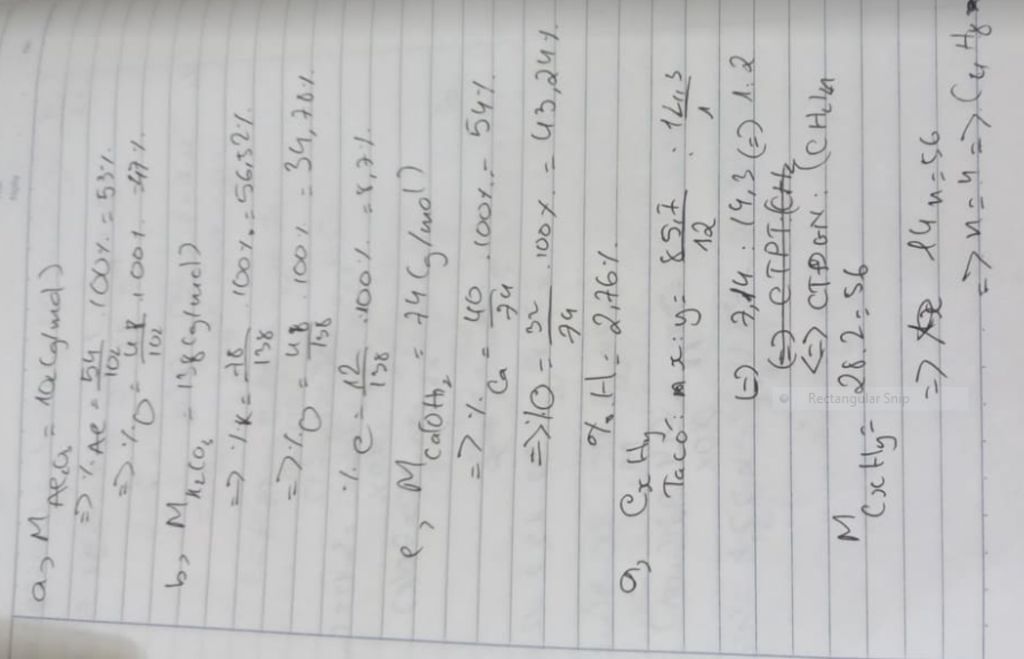 a, M Al2O3 = 102 (g/mol)
=> % Al = 54/102 . 100% = 53%
=> % O = 48/102 . 100% = 47%
b, M K2CO3 = 138 (g/mol)
=> % K = 78/138 . 100% = 56,52%
=> % O = 48/138 . 100% = 34,78%
% C = 12/138 . 100% = 8,7%
e, M Ca(OH)2 = 74 (g/mol)
=> % Ca = 40/74 . 100% = 54%
=> % O = 32/74 . 100% = 43,24%
% H = 2,76%
a, CxHy
Ta có: x : y = 85,7/12 : 14,3/1
(=) 7,14 : 14,3 (=) 1:2
(=) CTPT (CH2
(=) CTĐGN: (CH2)n
M CxHy = 28.2 = 56
=> 14n = 56
=> n = 4 => C4H8
Rectangular Snip